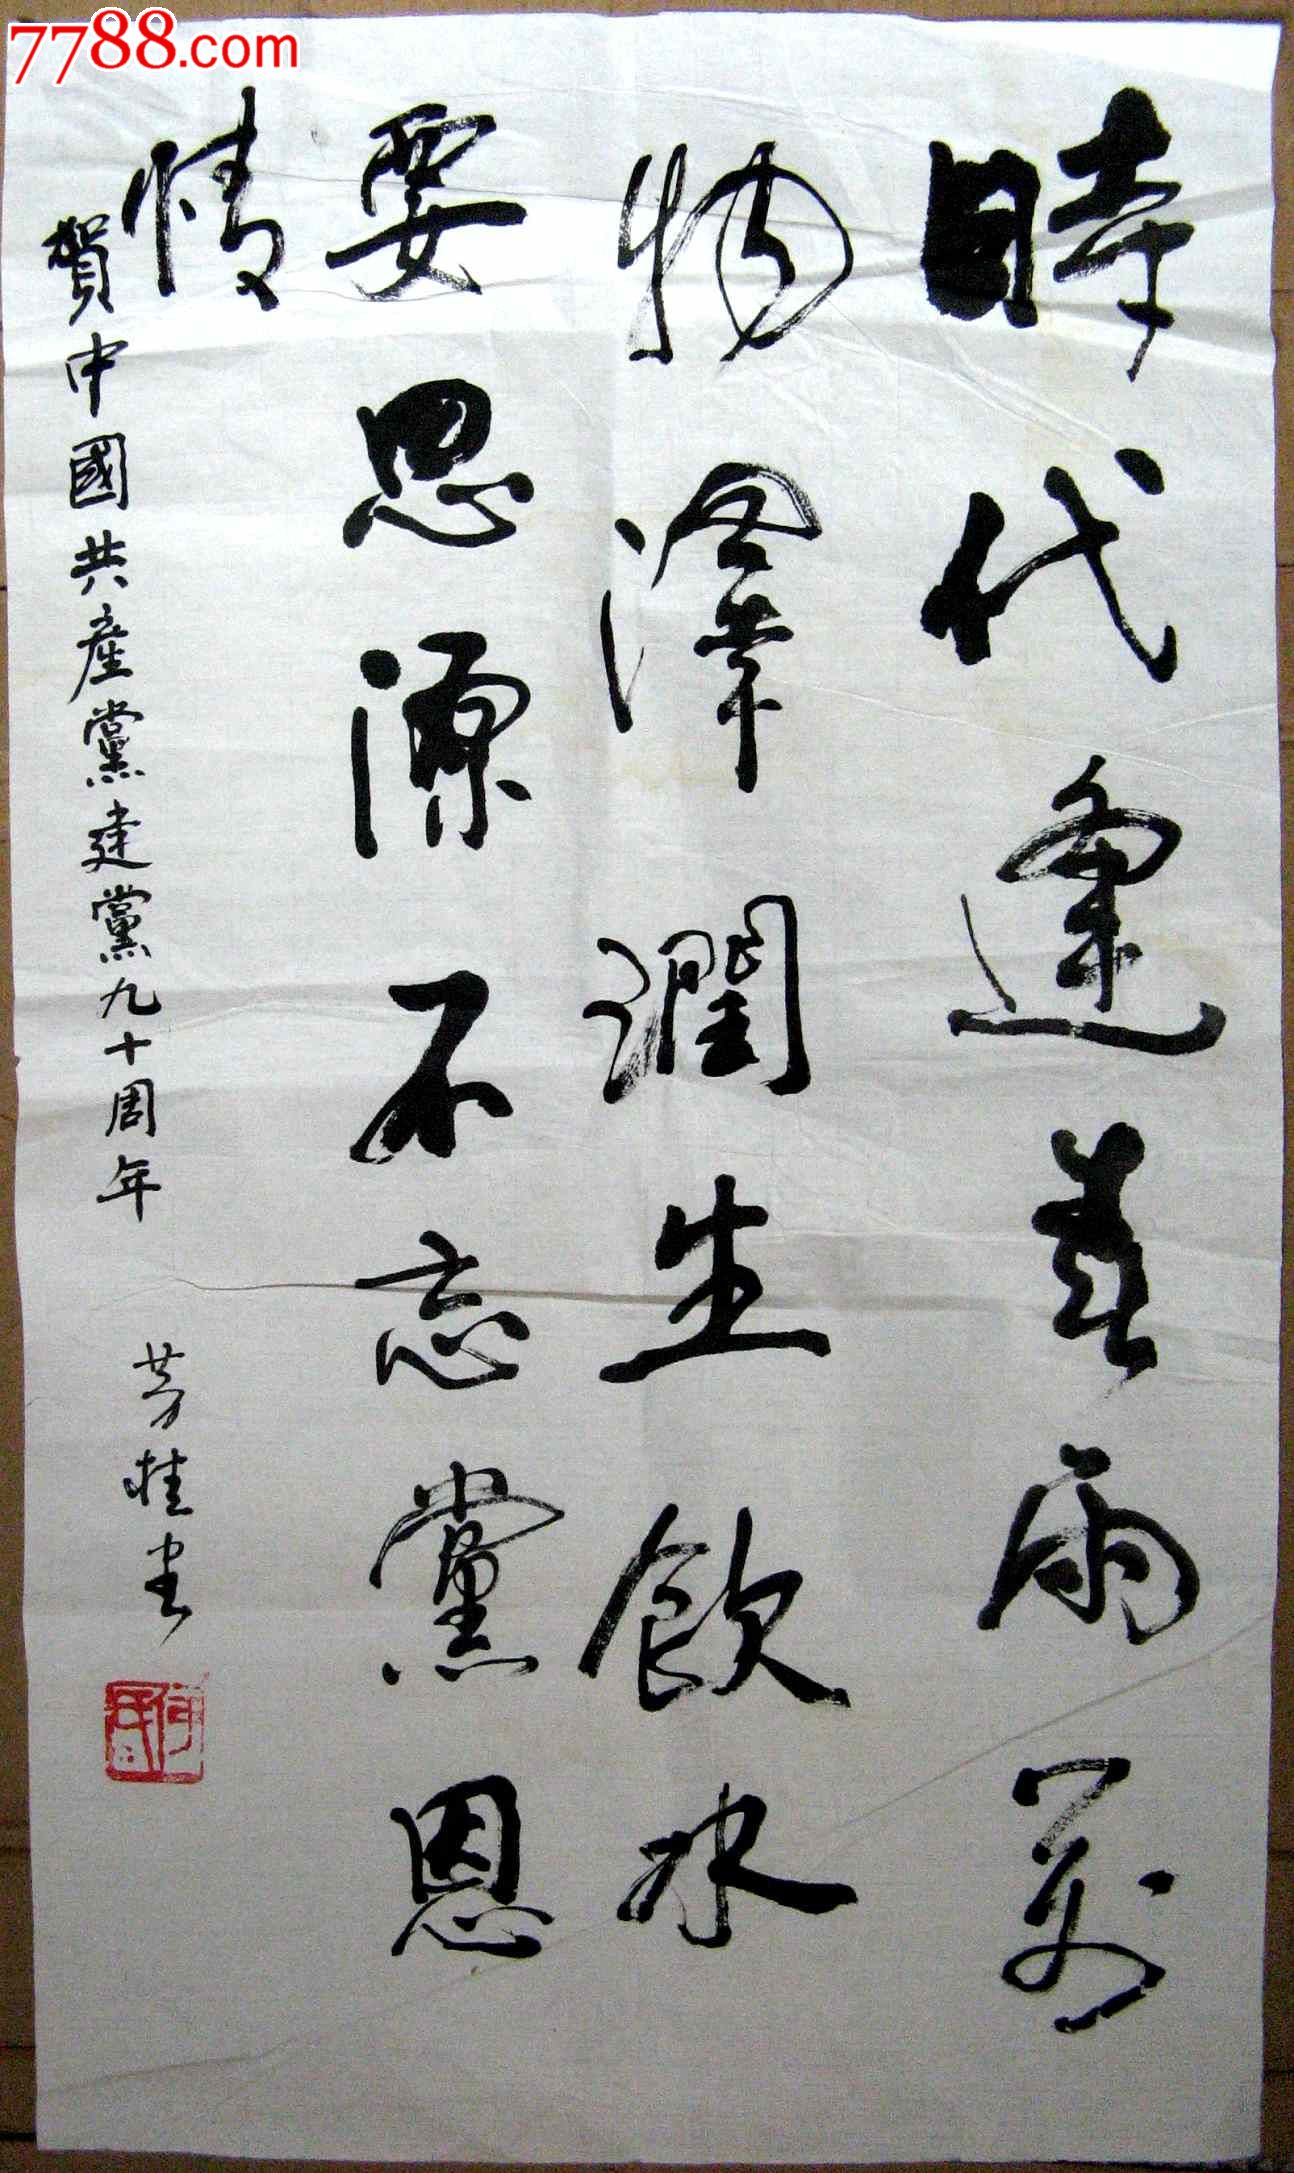 時代逢春雨萬
物澤潤生飲水
要思源不忘黨恩
情
賀中國共產黨建黨九十周年
芳桂書
7788.com